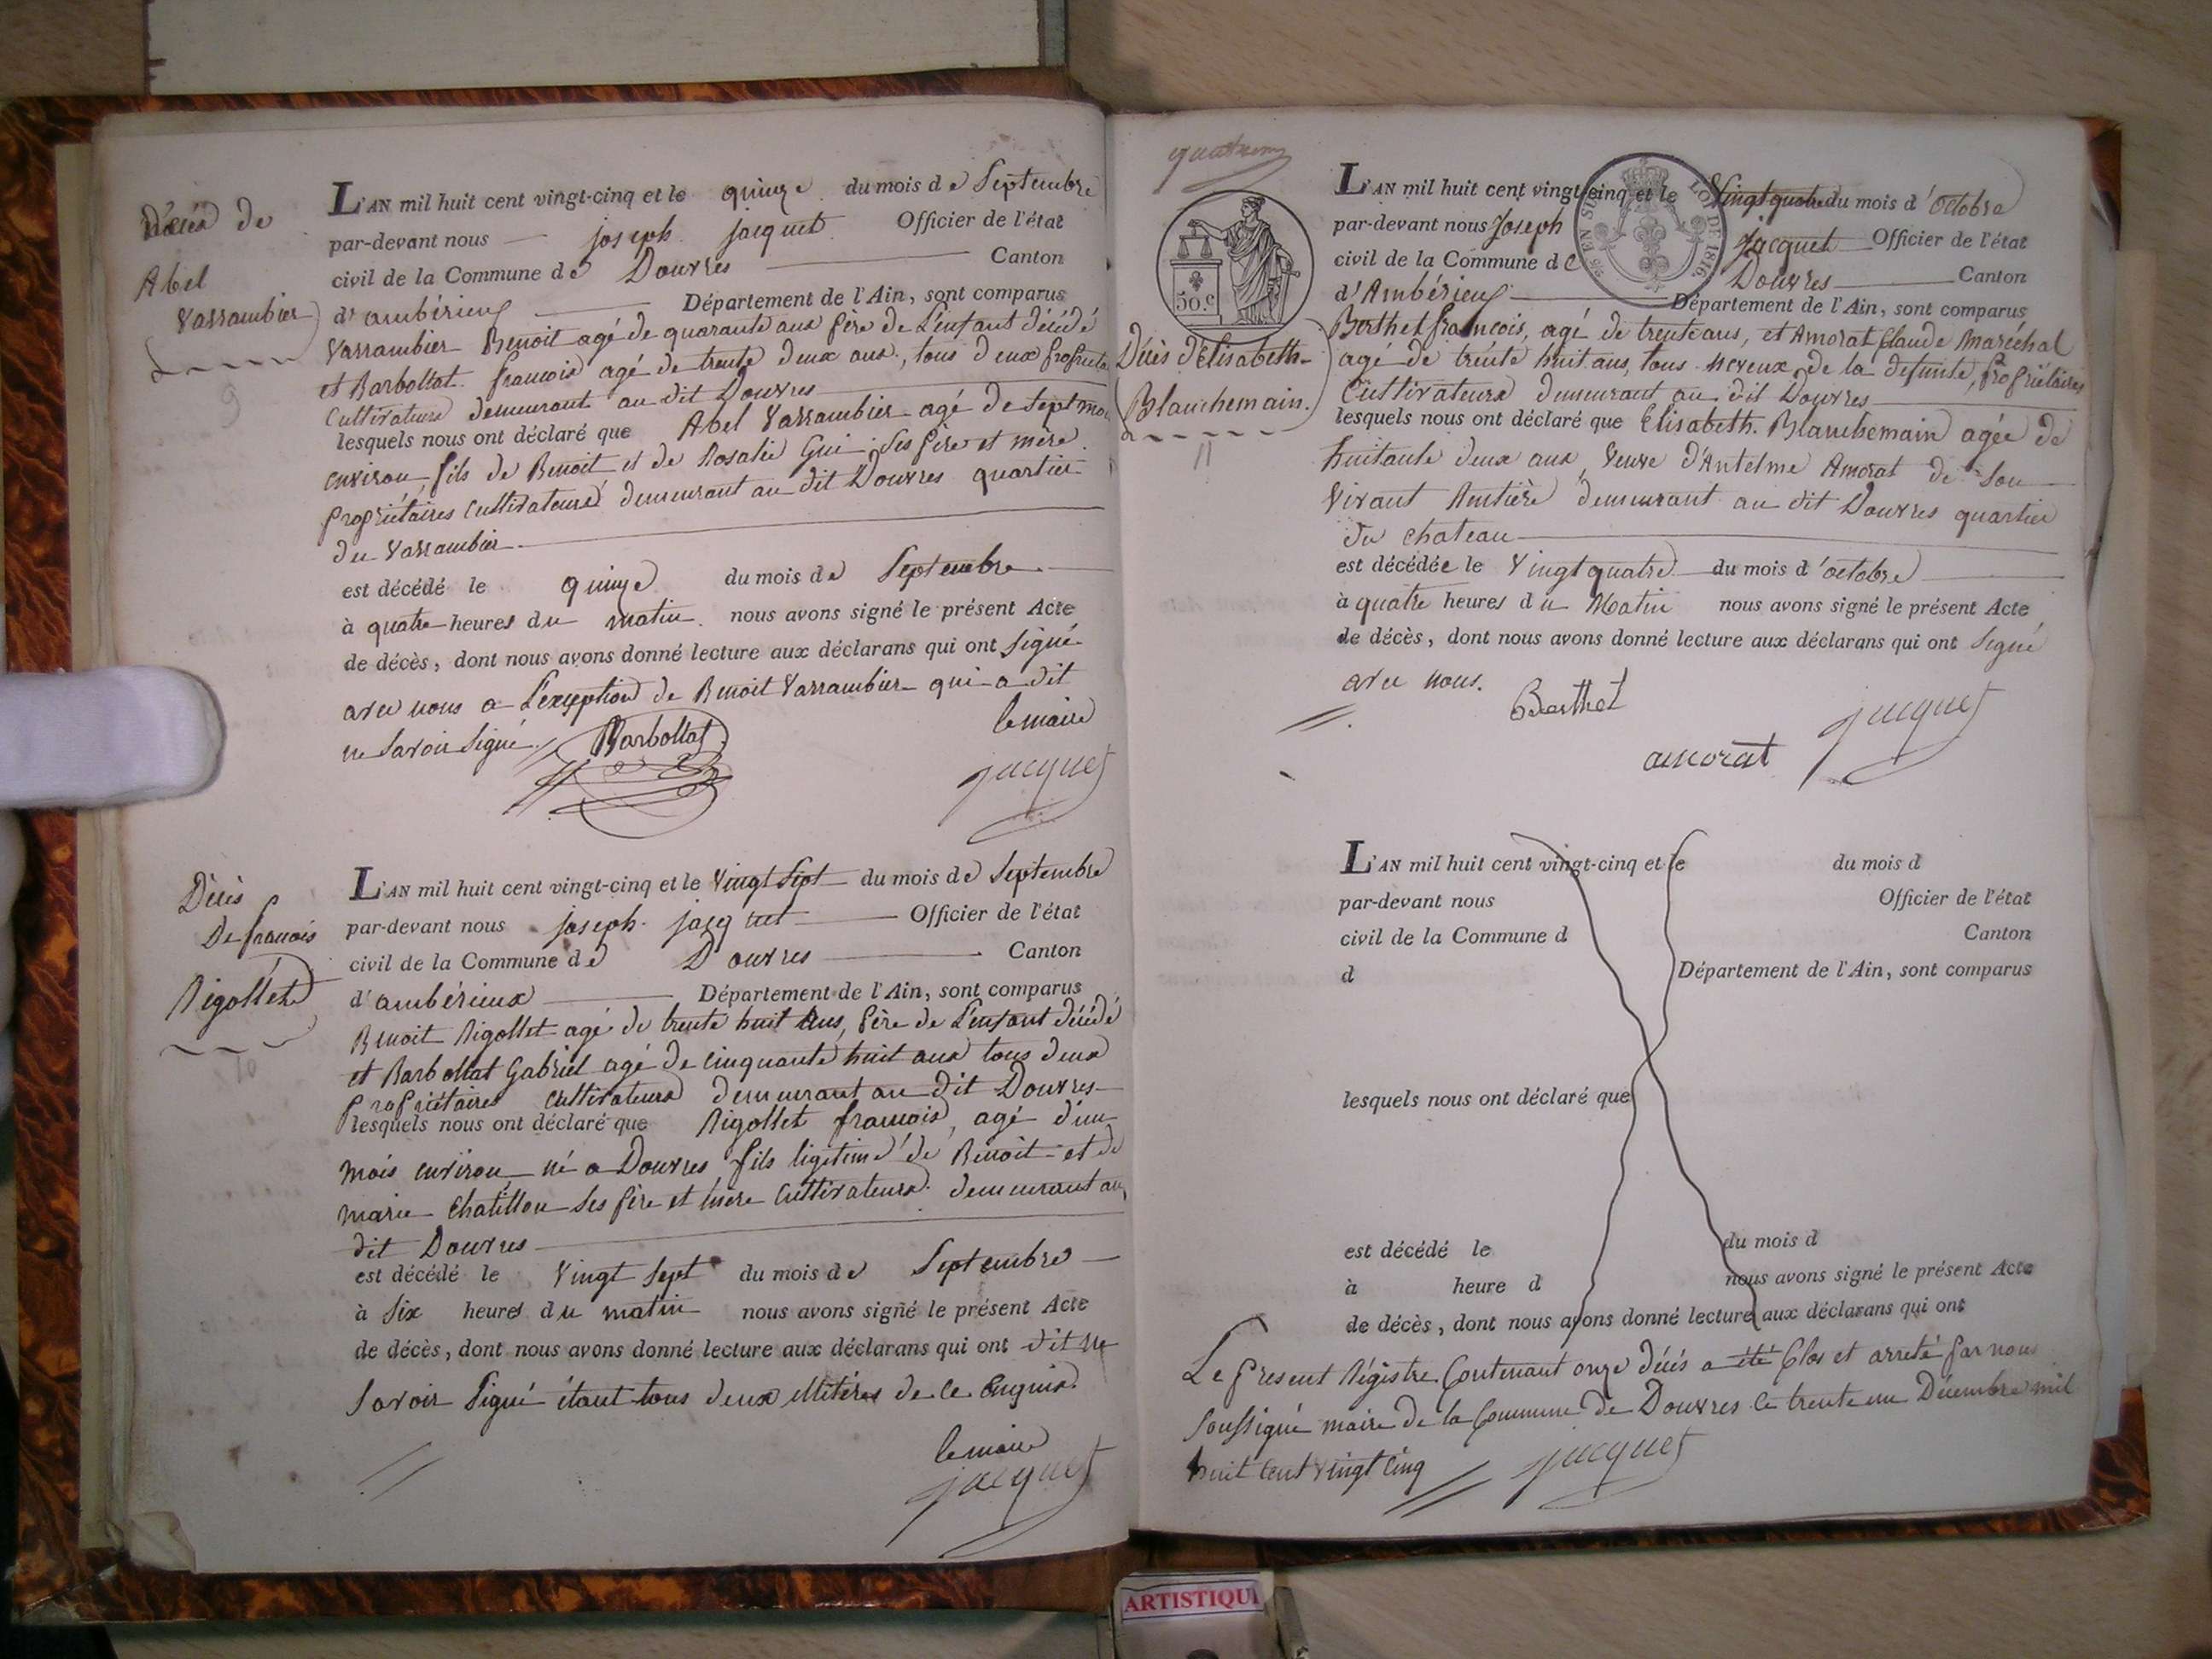 Décès de
Abel
Varrambier
9
L'AN mil huit cent vingt-cinq et le quinze du mois de Septembre
par-devant nous joseph jacquet Officier de l'état
civil de la Commune de Douvres Canton
d'ambérieux Département de l'Ain, sont comparus
Varrambier Benoit agé de quarante ans père de L'enfant décédé
et Barbollat françois agé de trente deux ans, tous deux propriétaires
Cultivateurs demeurant au dit Douvres
lesquels nous ont déclaré que Abel Varrambier agé de sept mois
environ, fils de Benoit et de Rosalie Gui ses père et mère
propriétaires Cultivateurs demeurant au dit Douvres quartier
du Varrambier
est décédé le quinze du mois de Septembre
à quatre heures du matin. nous avons signé le présent Acte
de décès, dont nous avons donné lecture aux déclarans qui ont signé
avec nous a L'exception de Benoit Varrambier qui a dit
ne savoir signé. Barbollat lemaire
jacquet
Décès
De françois
Rigollet
10
L'AN mil huit cent vingt-cinq et le Vingt Sept du mois de Septembre
par-devant nous joseph jacquet Officier de l'état
civil de la Commune de Douvres Canton
d'ambérieux Département de l'Ain, sont comparus
Benoit Rigollet agé de trente huit Ans, père de L'enfant décédé
et Barbollat Gabriel agé de cinquante huit ans tous deux
propriétaires cultivateurs demeurant au dit Douvres
lesquels nous ont déclaré que Rigollet françois, agé d'un
mois environ né a Douvres fils ligitime de Benoit et de
marie Chatillon ses père et mère Cultivateurs demeurant au
dit Douvres
est décédé le Vingt Sept du mois de Septembre
à six heures du matin nous avons signé le présent Acte
de décès, dont nous avons donné lecture aux déclarans qui ont dit ne
savoir signé étant tous deux illitérés de ce enquis
lemaire
jacquet
50.c
LOI DE 1816.
Décès d'Elisabeth
Blanchemain.
11
L'AN mil huit cent vingt-cinq et le Vingt quatre du mois d'Octobre
par-devant nous Joseph Jacquet Officier de l'état
civil de la Commune de Douvres Canton
d'Ambérieux Département de l'Ain, sont comparus
Berthet françois, agé de trente ans, et Amorat Claude Maréchal
agé de trente huit ans, tous neveux de la defunte, propriétaires
Cultivateurs demeurant au dit Douvres
lesquels nous ont déclaré que Elisabeth Blanchemain agée de
huitante deux ans, Veuve d'Antelme Amorat de son
vivant Rentière demeurant au dit Douvres quartier
du chateau
est décédée le Vingt quatre du mois d'octobre
à quatre heures du Matin nous avons signé le présent Acte
de décès, dont nous avons donné lecture aux déclarans qui ont signé
avec nous. Berthet
jacquet
amorat
L'AN mil huit cent vingt-cinq et le du mois d
par-devant nous Officier de l'état
civil de la Commune d Canton
d Département de l'Ain, sont comparus
lesquels nous ont déclaré que
est décédé le du mois d
à heure d nous avons signé le présent Acte
de décès, dont nous avons donné lecture aux déclarans qui ont
Le present Régistre Contenant onze décès a été Clos et arreté par nous
Soussigné maire de la Commune de Douvres le trente un Décembre mil
huit cent vingt cinq jacquet
ARTISTIQU